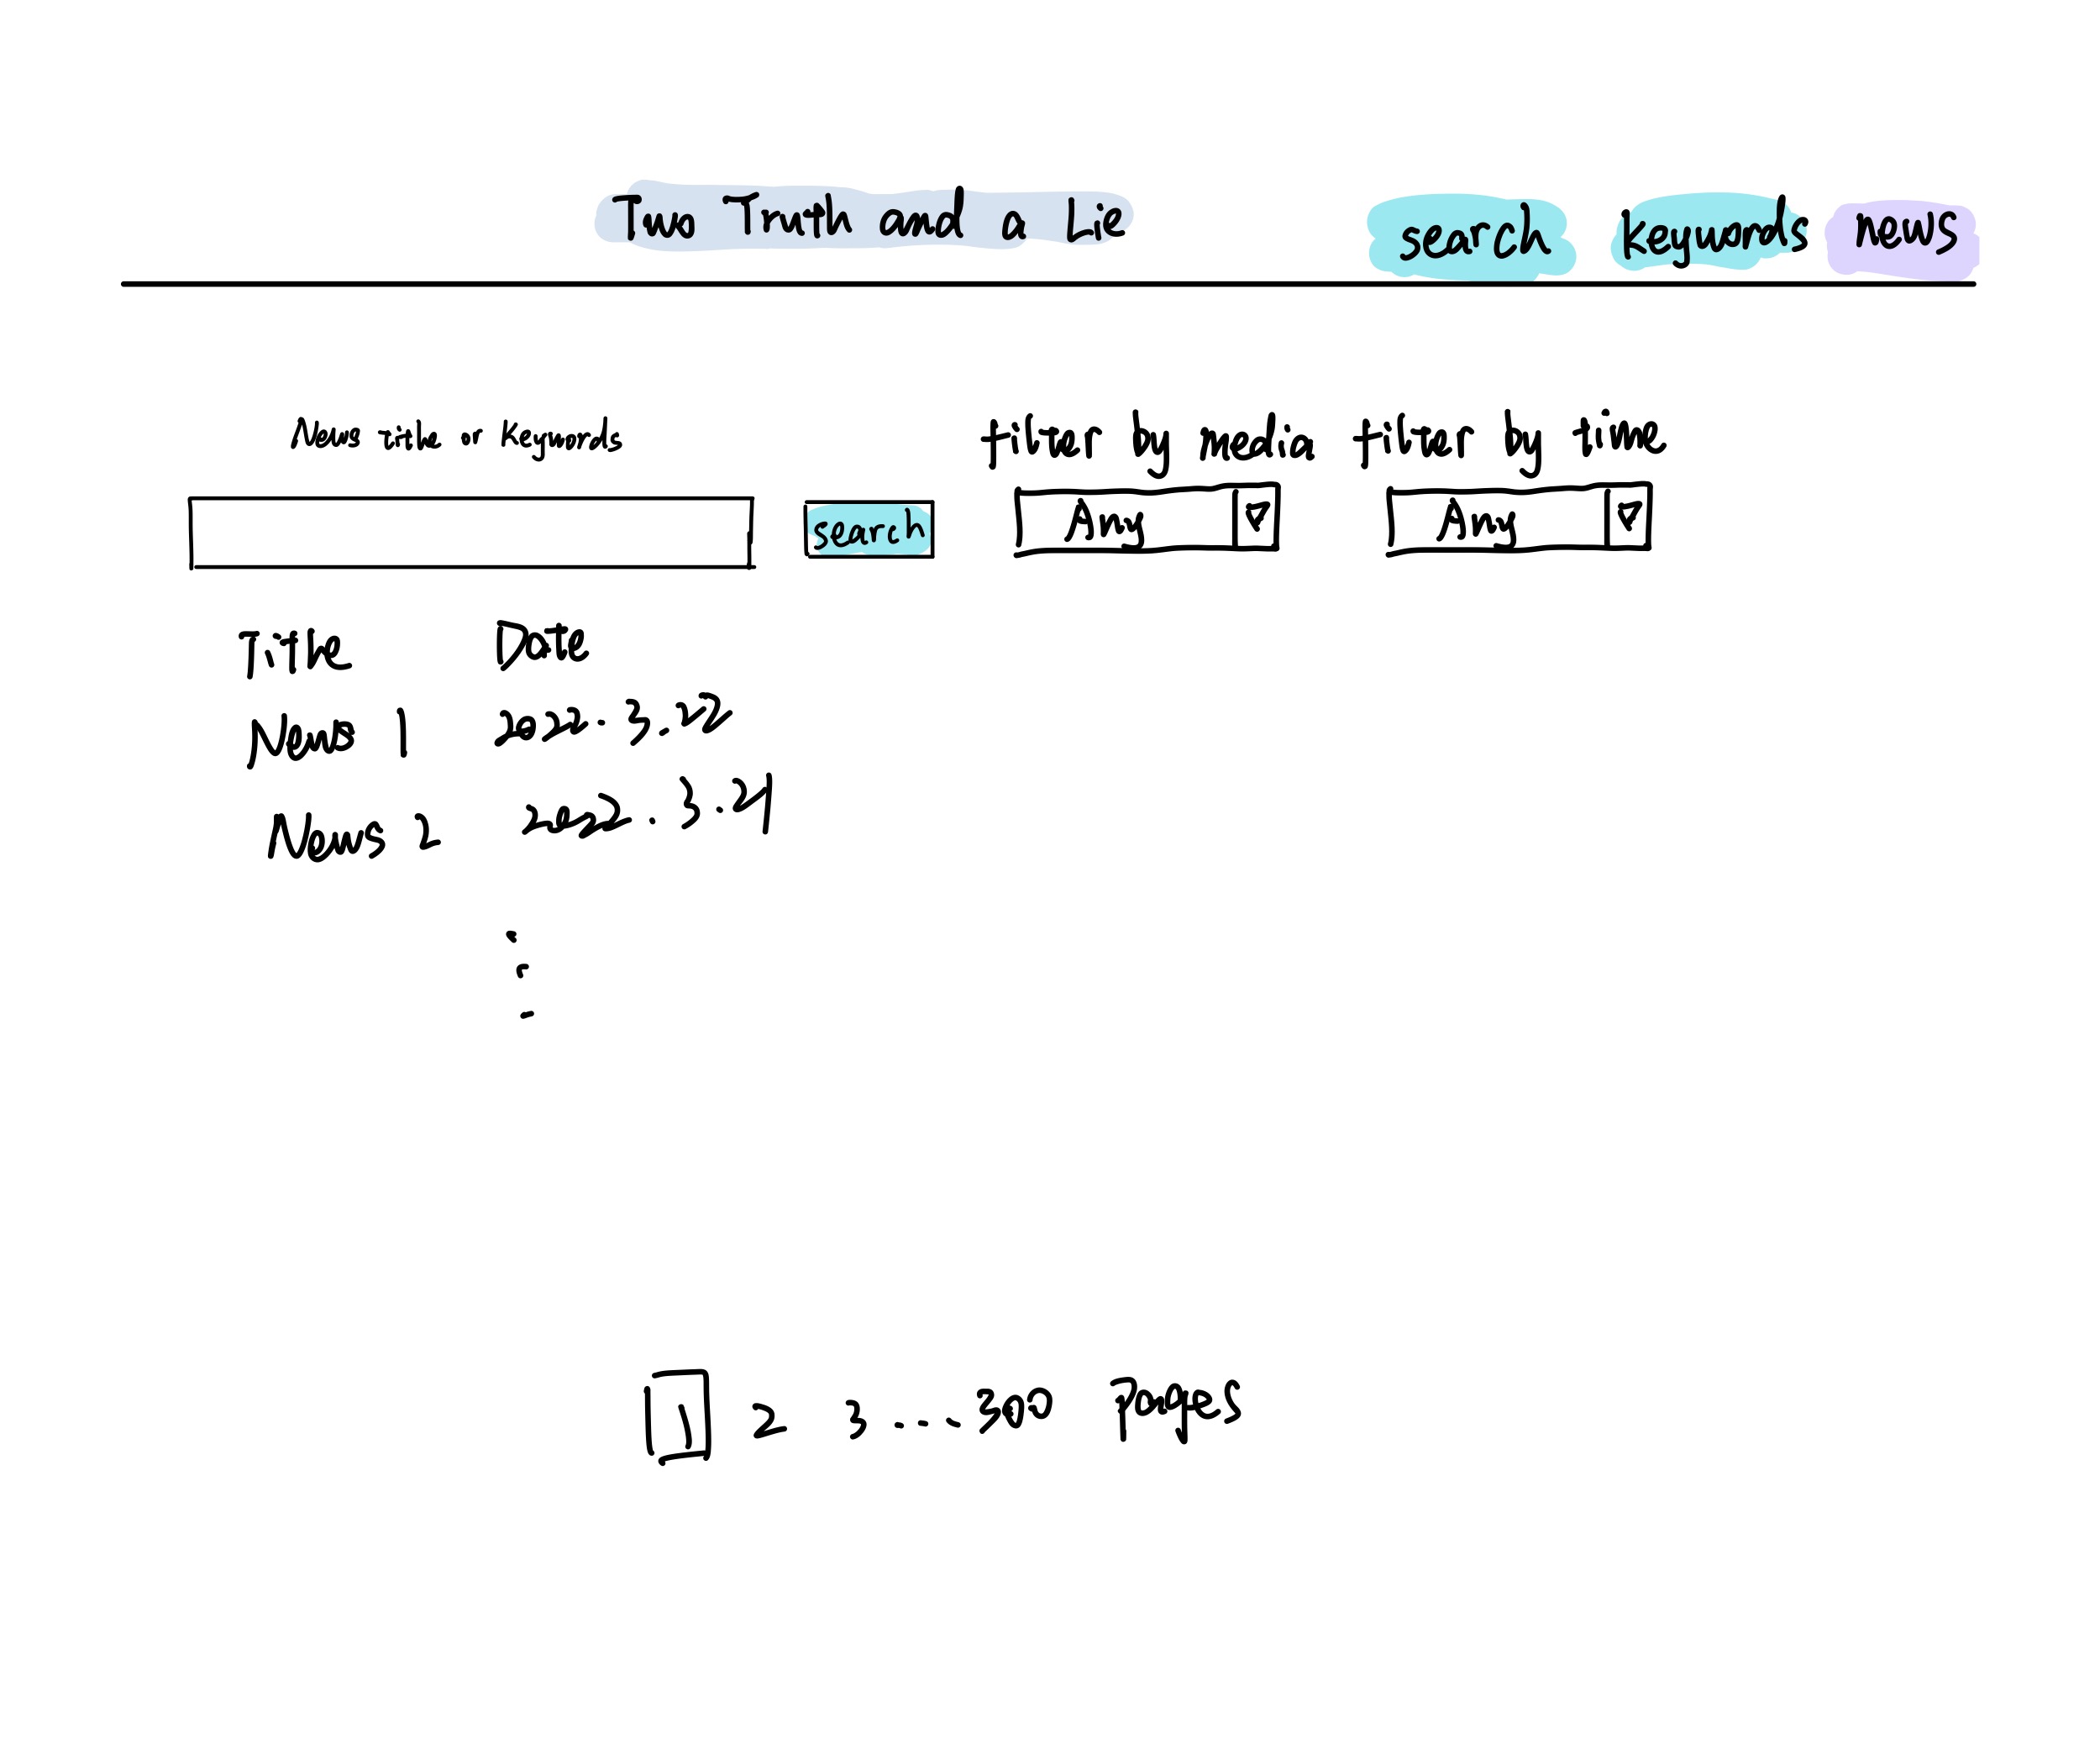 Two Truth and a Lie search keywords news
News title or keywords filter by median filter by time
search Any Any
Title Date
News 1 2022.3.22
News 2 2022.3.21
1 2 3 ... 300 pages